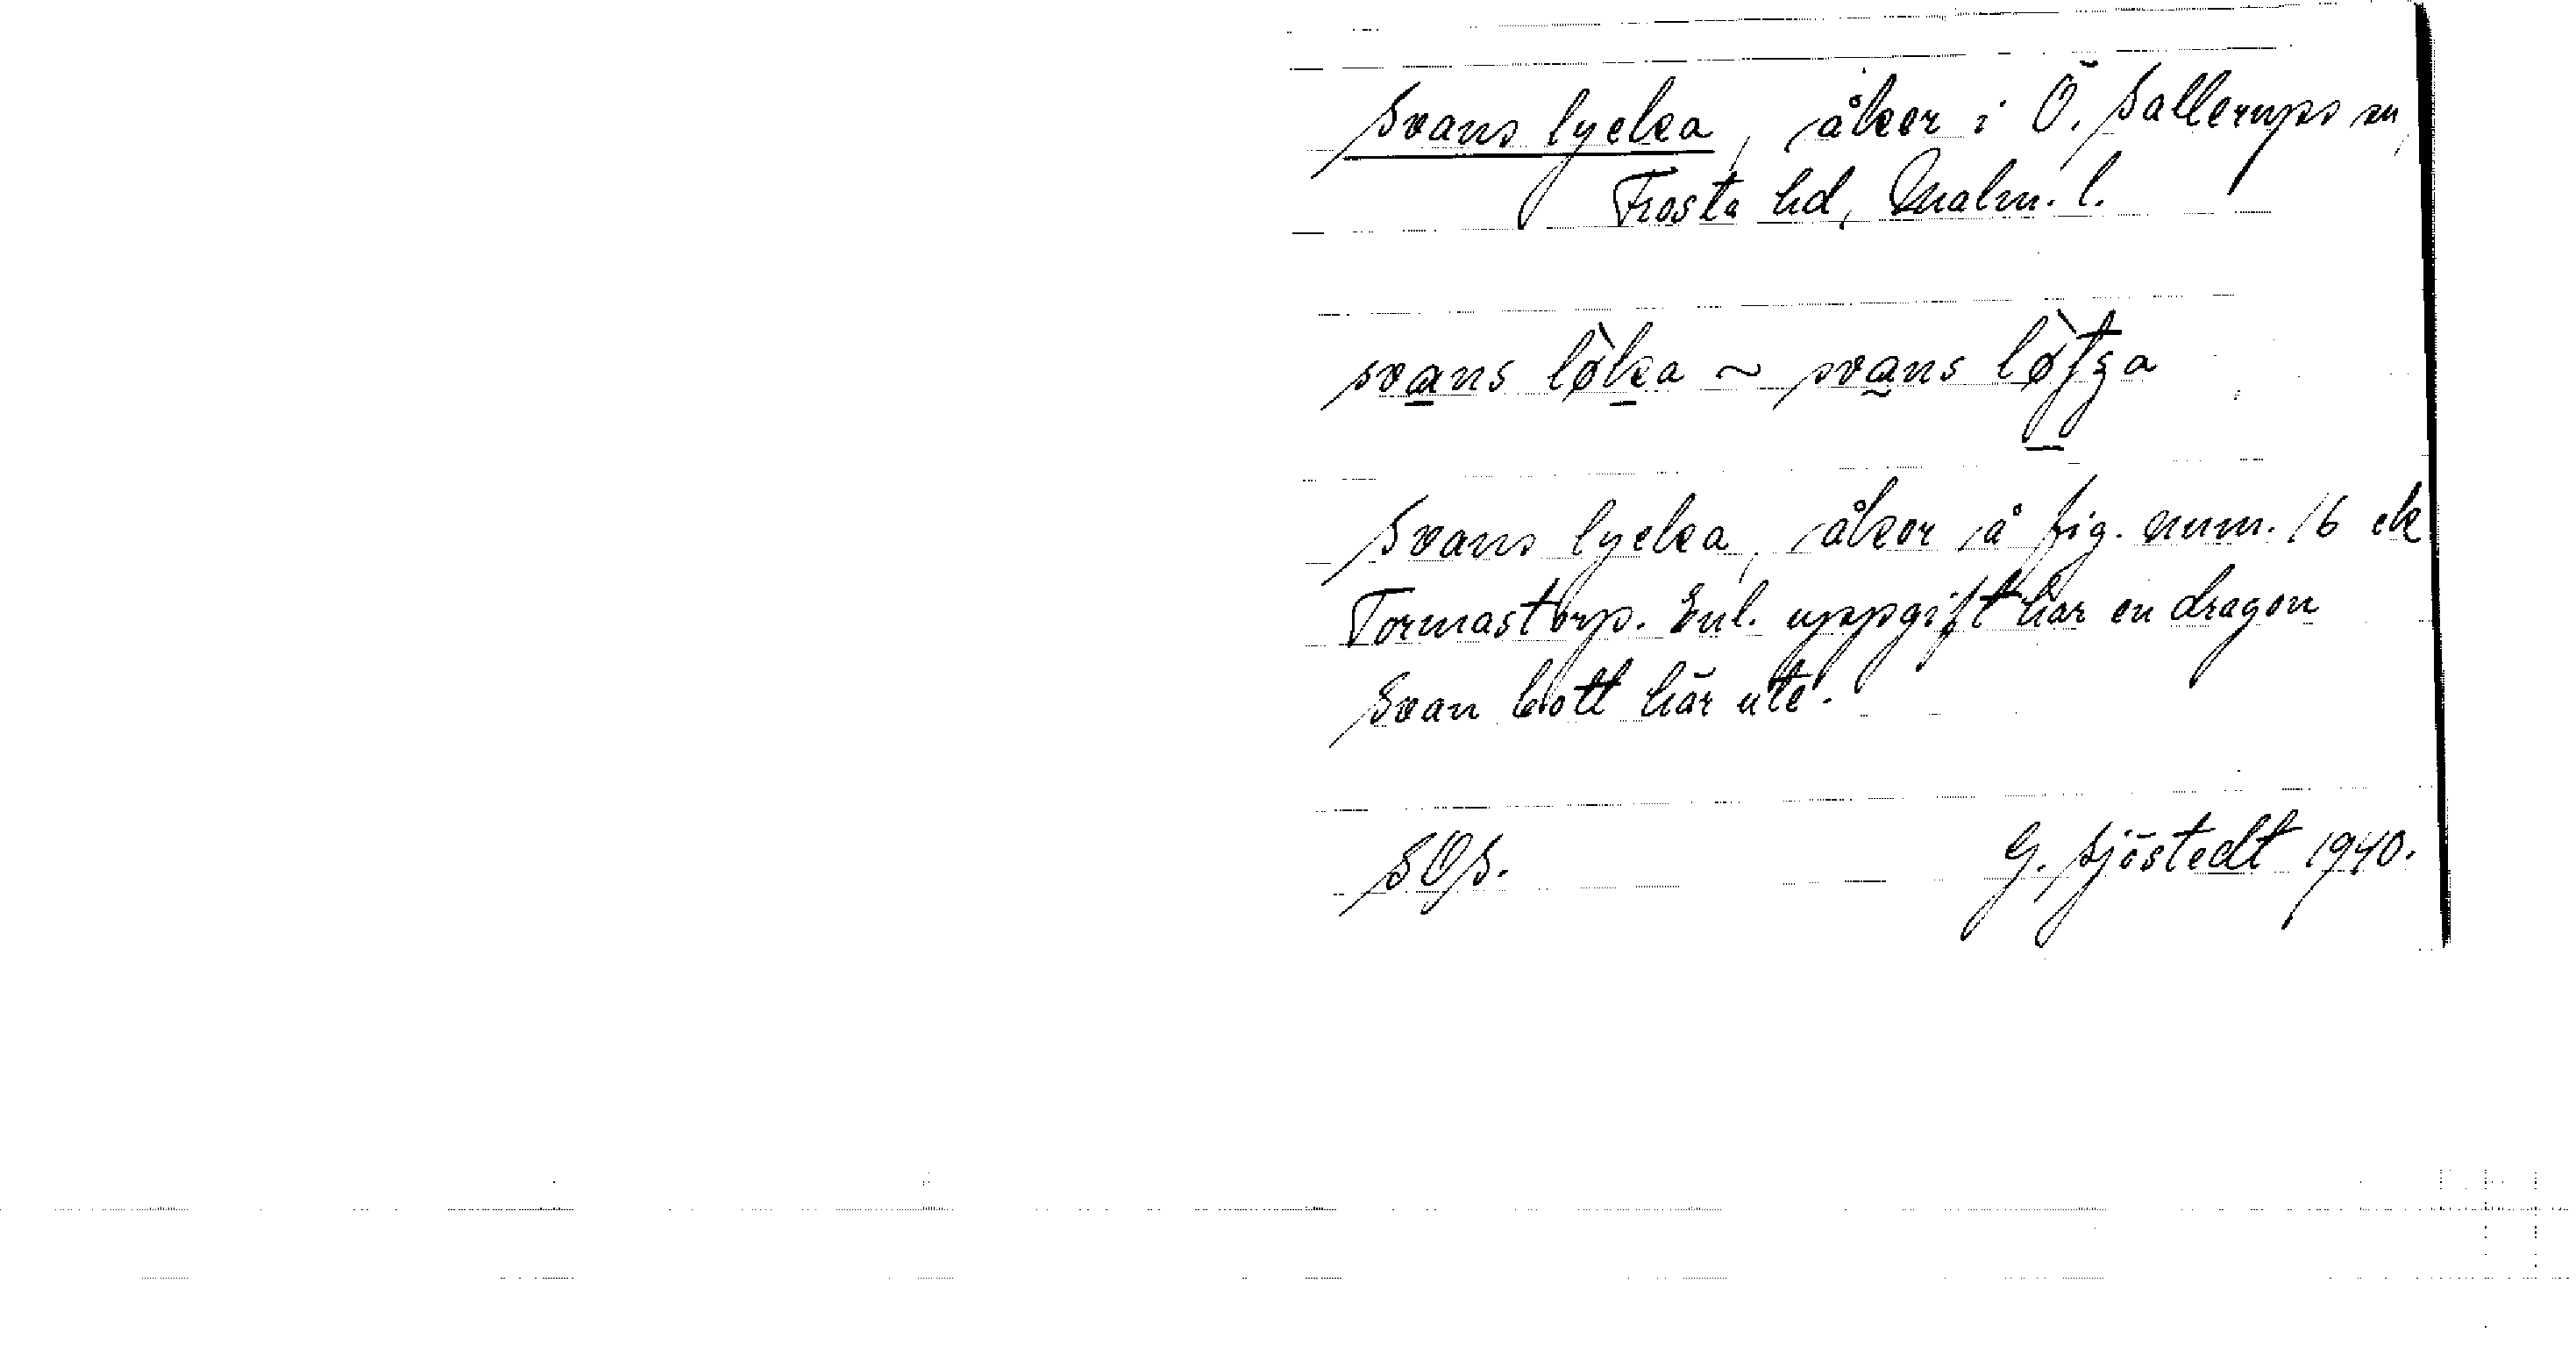 Svans lycka, åker i Ö. Sallerups sn,
Frosta hd, Malm. l.
svans lø̀ka ~ svans lø̀tʒa
Svans lycka, åker å fig. num. 16 ek
Tormastorp. Enl. uppgift har en dragon
Svan bott här ute.
SOS. G. Sjöstedt 1940.